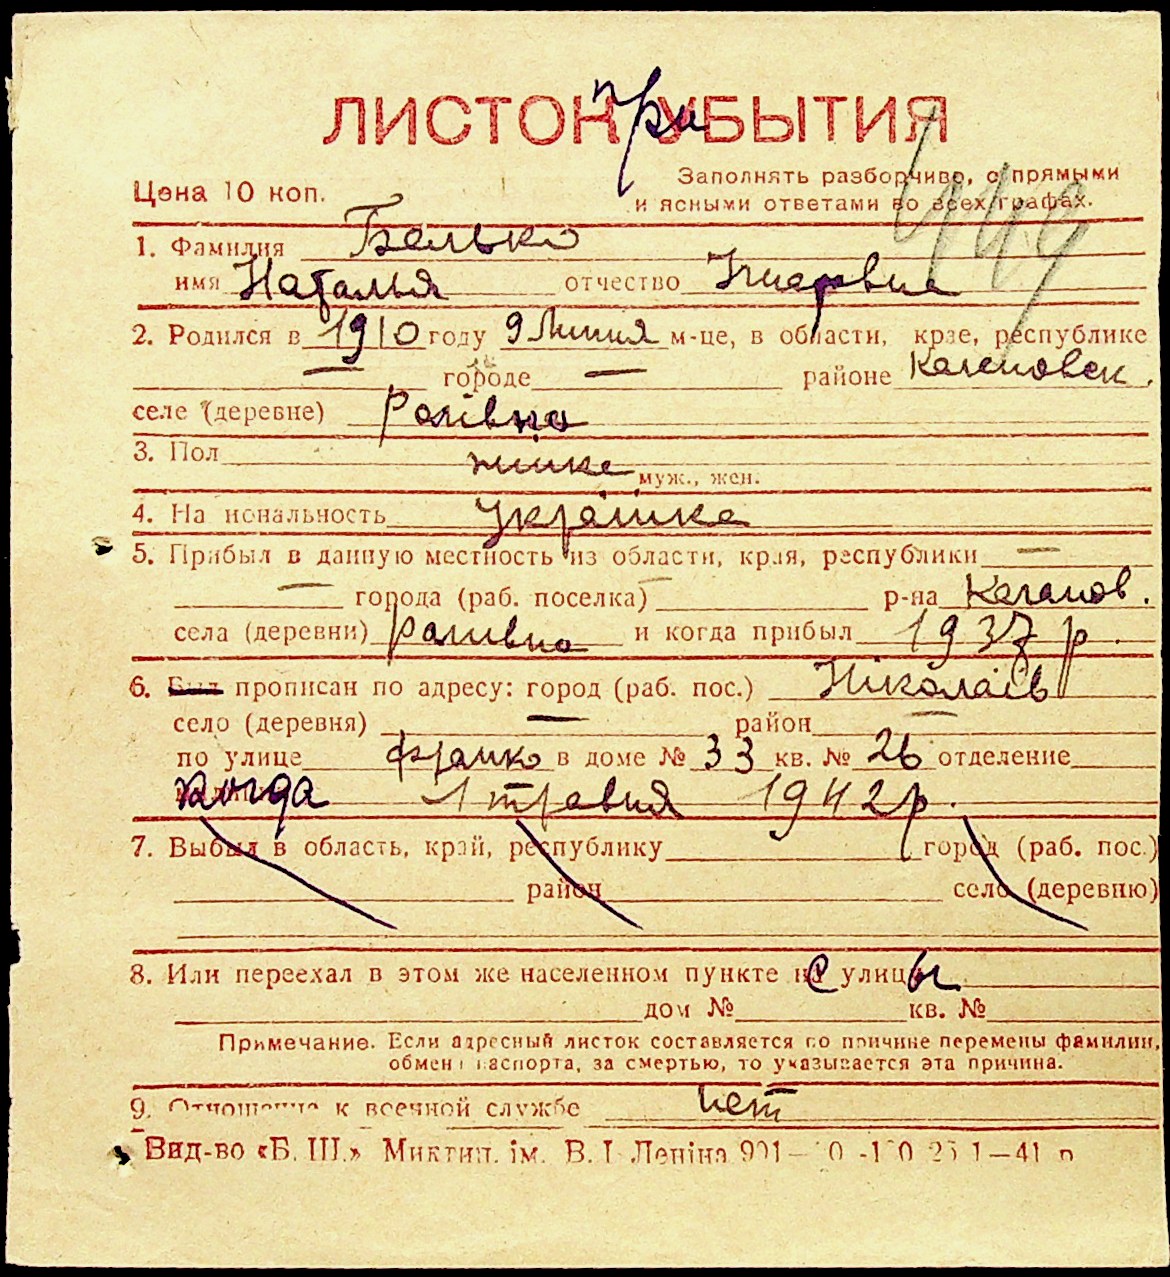 ЛИСТОК при УБЫТИЯ
Цена 10 коп.
Заполнять разборчиво, с прямыми
и ясными ответами во всех графах.
449
1. Фамилия Белько
имя Наталья отчество
2. Родился в 1910 году 9 Липня м-це, в области, крае, республике
— городе — районе
селе (деревне) Ролівка
3. Пол жінка муж., жен.
4. Национальность Українка
5. Прибыл в данную местность из области, края, республики —
— города (раб. поселка) — р-на
села (деревни) и когда прибыл 1937 р.
6. Был прописан по адресу: город (раб. пос.) Ніколаїв
село (деревня) — район —
по улице Франко в доме № 33 кв. № 26 отделение
когда 1 травня 1942 р.
7. Выбыл в область, край, республику город (раб. пос.)
район село (деревню)
8. Или переехал в этом же населенном пункте с улицы
дом № кв. №
Примечание. Если адресный листок составляется по причине перемены фамилии,
обмена паспорта, за смертью, то указывается эта причина.
9. Отношение к военной службе нет
Вид-во «Б. Ш.» Миктип. ім. В. І. Леніна